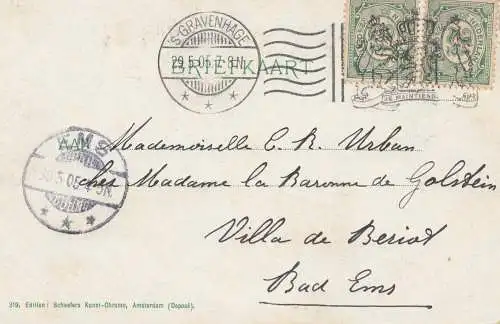 'S-GRAVENHAGE
29.5.05.7-8N
BRIEFKAART
JE MAINTIENDRAI
EMS
AAN
30.5.05.
Mademoiselle C. R. Urban
chez Madame la Baronne de Golstein
Villa de Beriot
Bad Ems
319. Edition: Schaefers Kunst-Chromo, Amsterdam (Deposé).